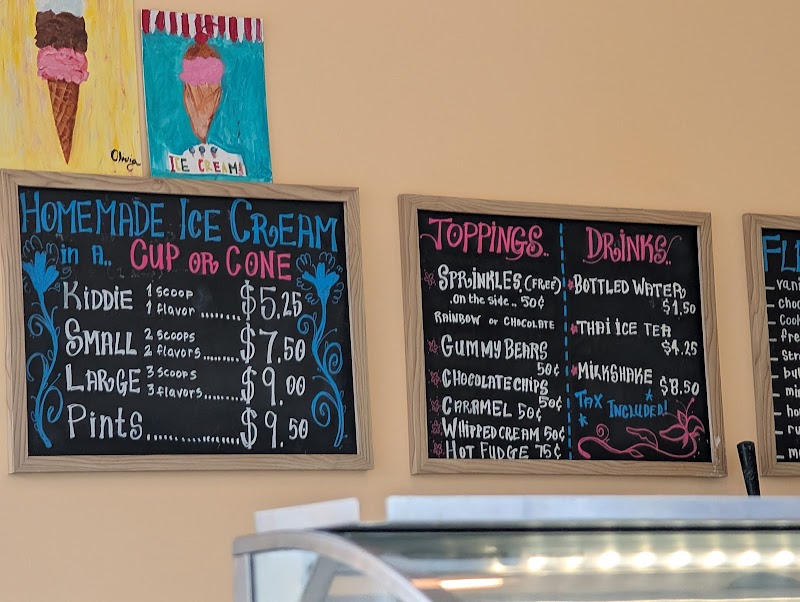 Olivia
ICE CREAM
HOMEMADE ICE CREAM
in A.. CUP OR CONE
KIDDIE 1 scoop
1 flavor ........ $5.25
SMALL 2 scoops
2 flavors ........ $7.50
LARGE 3 scoops
3 flavors ........ $9.00
Pints ............... $9.50
TOPPINGS..
SPRINKLES (FREE)
.on the side .. 50¢
RAINBOW or CHOCOLATE
GUMMY BEARS
50¢
CHOCOLATE CHIPS
50¢
CARAMEL 50¢
WHIPPED CREAM 50¢
HOT FUDGE 75¢
DRINKS..
BOTTLED WATER
$1.50
THAI ICE TEA
$4.25
MILKSHAKE
$8.50
TAX INCLUDED!